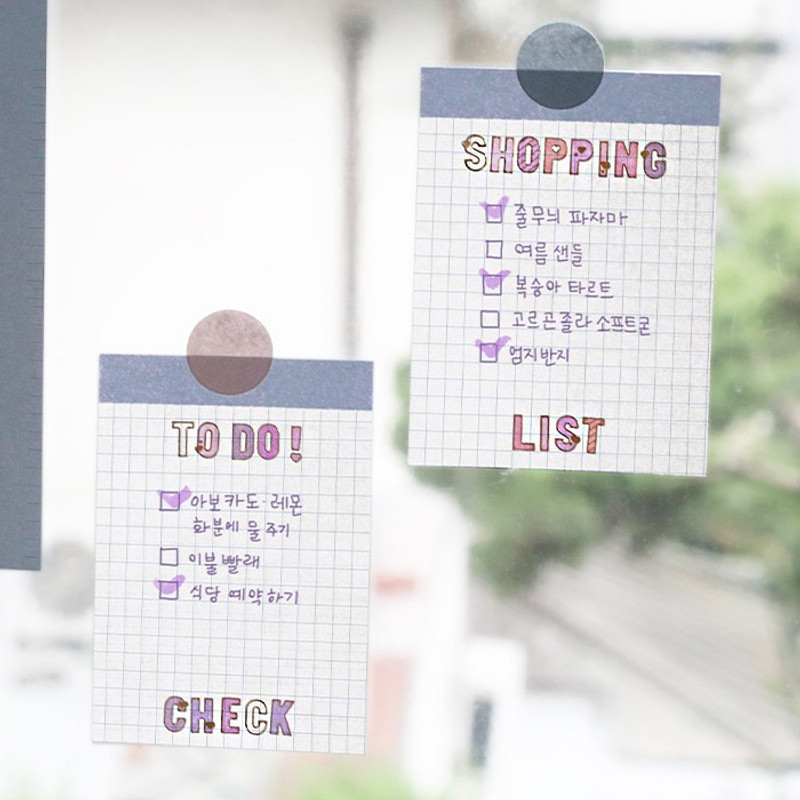 SHOPPING
줄무늬 파자마
여름 샌들
복숭아 타르트
고르곤졸라 소프트콘
엄지반지
LIST
TO DO!
아보카도·레몬
화분에 물주기
이불빨래
식당 예약하기
CHECK